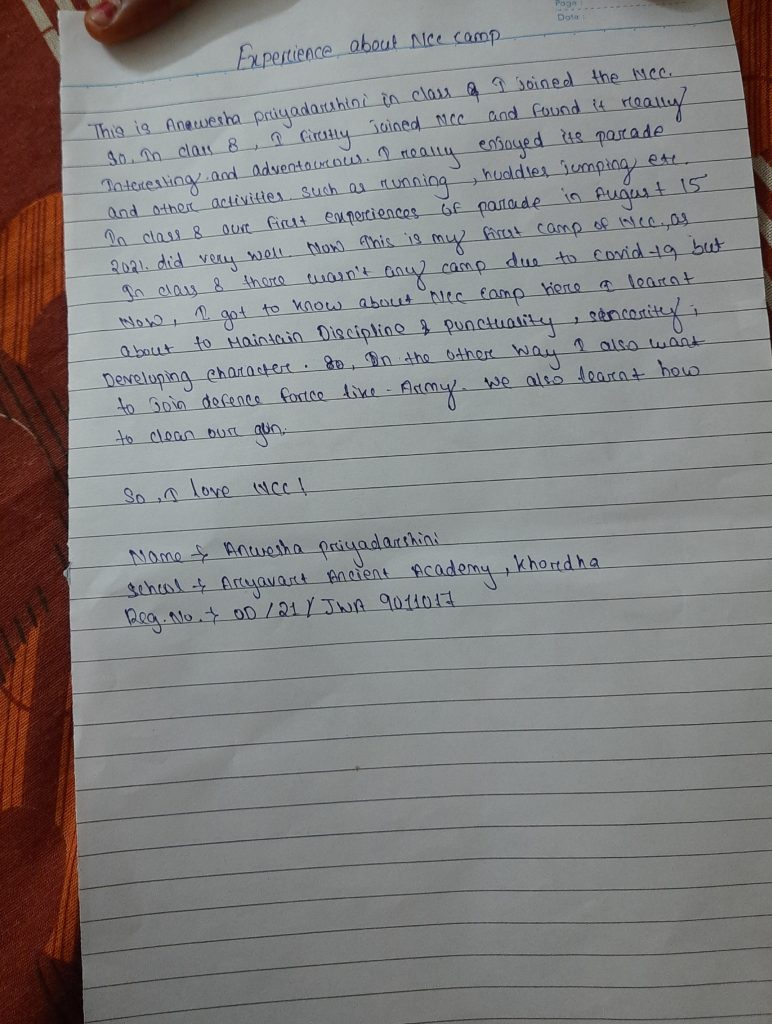 Page :
Date :
Experience about Ncc camp
This is Anewesha priyadarshini in class I joined the Ncc.
So, In class 8, I firstly joined Ncc and found it really
Interesting and adventourous. I really enjoyed its parade
and other activities such as running, huddles jumping etc.
In class 8 our first experiences of parade in August 15
2021. did very well. Now This is my first camp of Ncc, as
In class 8 there wasn't any camp due to covid-19 but
Now, I got to know about Ncc camp Here I learnt
about to Maintain Discipline & punctuality, sencerity,
Developing character. So, In the other way I also want
to join defence force like - Army. We also learnt how
to clean our gun.
So, I love Ncc!
Name → Anwesha priyadarshini
School → Aryavart Ancient Academy, Khordha
Reg. No. → OD/21/JWA 9011017